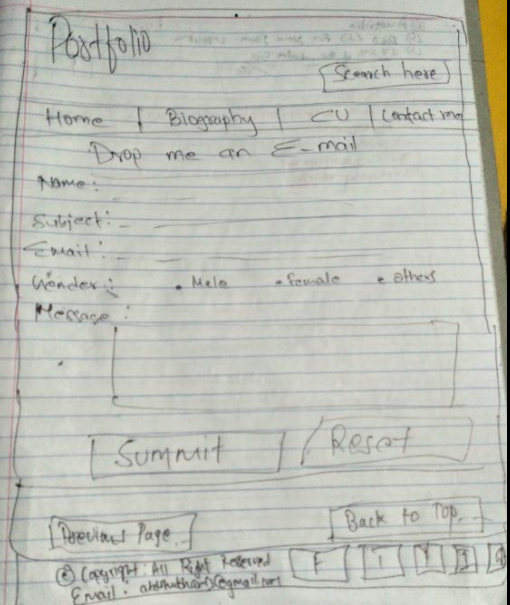 Portfolio
Search here
Home | Biography | CV | Contact me
Drop me an E-mail
Name:
Subject:
Email:
Gender: • Male • female • others
Message:
Summit Reset
Previous Page Back to Top
© Copyright: All Right Reserved
Email:
F T Y